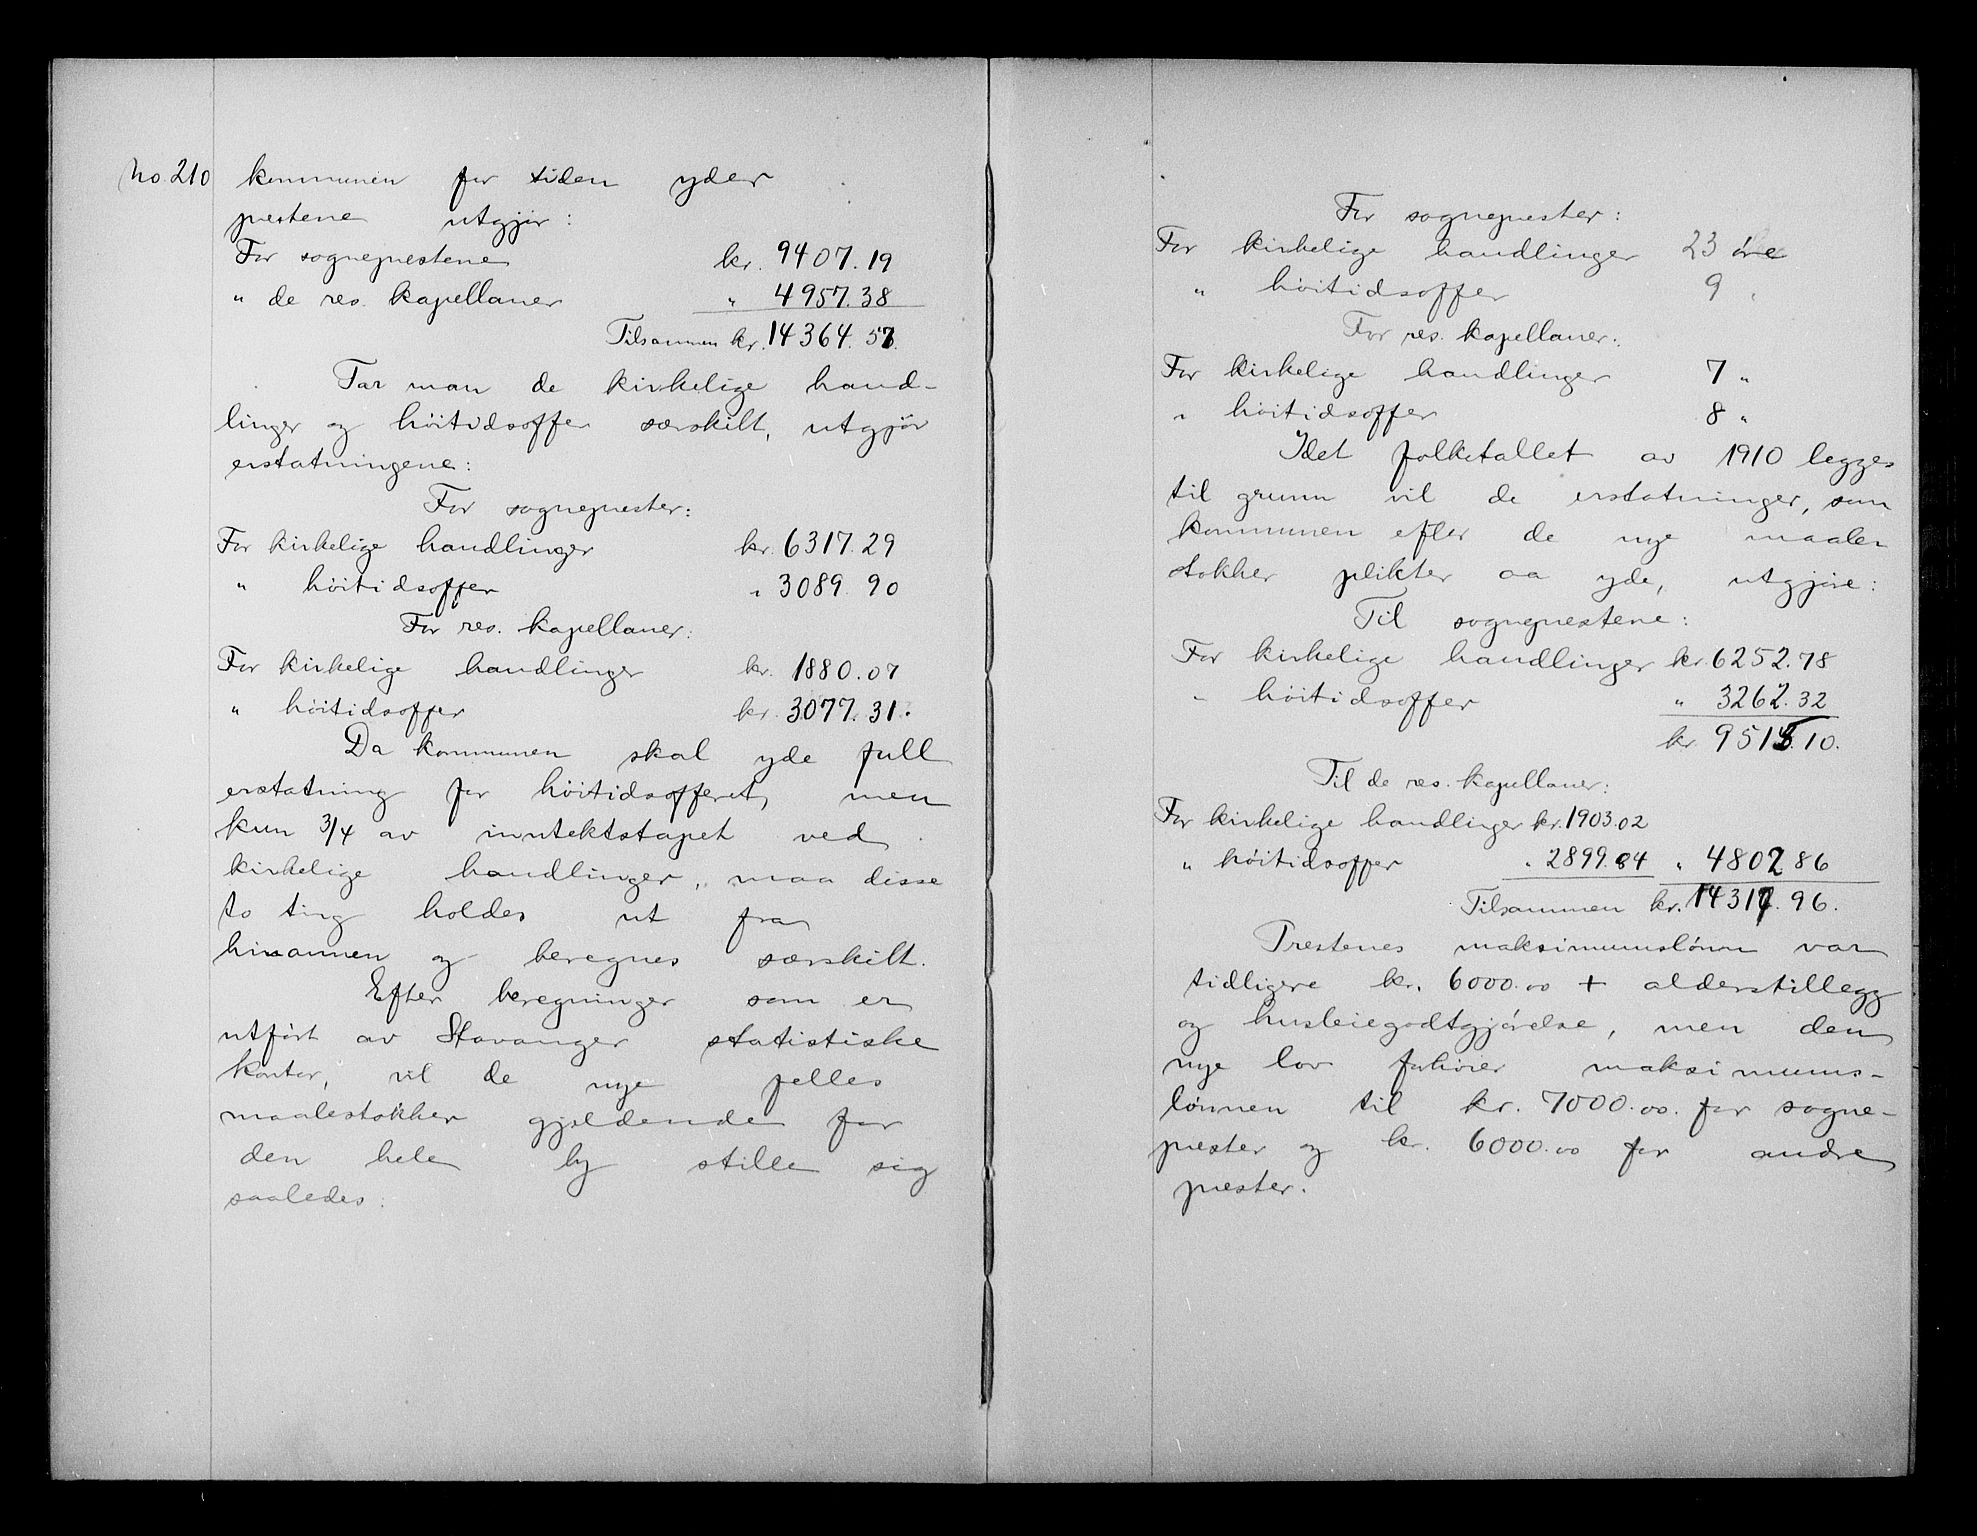 No. 210 kommunen for tiden yder
prestene utgjør:
For sogneprestene kr. 9407.19
" de res. kapellaner " 4957.38
Tilsammen kr. 14364.57.
Tar man de kirkelige hand-
linger og høitidsoffer særskilt, utgjør
erstatningene:
For sogneprester:
For kirkelige handlinger kr. 6317.29
" høitidsoffer " 3089.90
For res. kapellaner:
For kirkelige handlinger kr. 1880.07
" høitidsoffer kr. 3077.31.
Da kommunen skal yde full
erstatning for høitidsofferet, men
kun 3/4 av inntektstapet ved
kirkelige handlinger, maa disse
to ting holdes ut fra
hinannen og beregnes særskilt.
Efter beregninger som er
utført av Stavanger statistiske
kontor, vil de nye felles
maalestokker gjældende for
den hele by stille sig
saaledes:
For sogneprester:
For kirkelige handlinger 23 øre
" høitidsoffer 9 "
For res. kapellaner:
For kirkelige handlinger 7 "
" høitidsoffer 8 "
Idet folketallet av 1910 legges
til grunn vil de erstatninger, som
kommunen efter de nye maale-
stokker plikter aa yde, utgjøre:
Til sogneprestene:
For kirkelige handlinger kr. 6252.78
" høitidsoffer " 3262.32
kr. 9515.10.
Til de res. kapellaner:
For kirkelige handlinger kr. 1903.02
" høitidsoffer " 2899.84 " 4802.86
Tilsammen kr. 14317.96.
Prestenes maksimumslønn var
tidligere kr. 6000.00 + alderstillegg
og husleiegodtgjørelse, men den
nye lov forhøier maksimums-
lønnen til kr. 7000.00. for sogne-
prester og kr. 6000.00 for andre
prester.